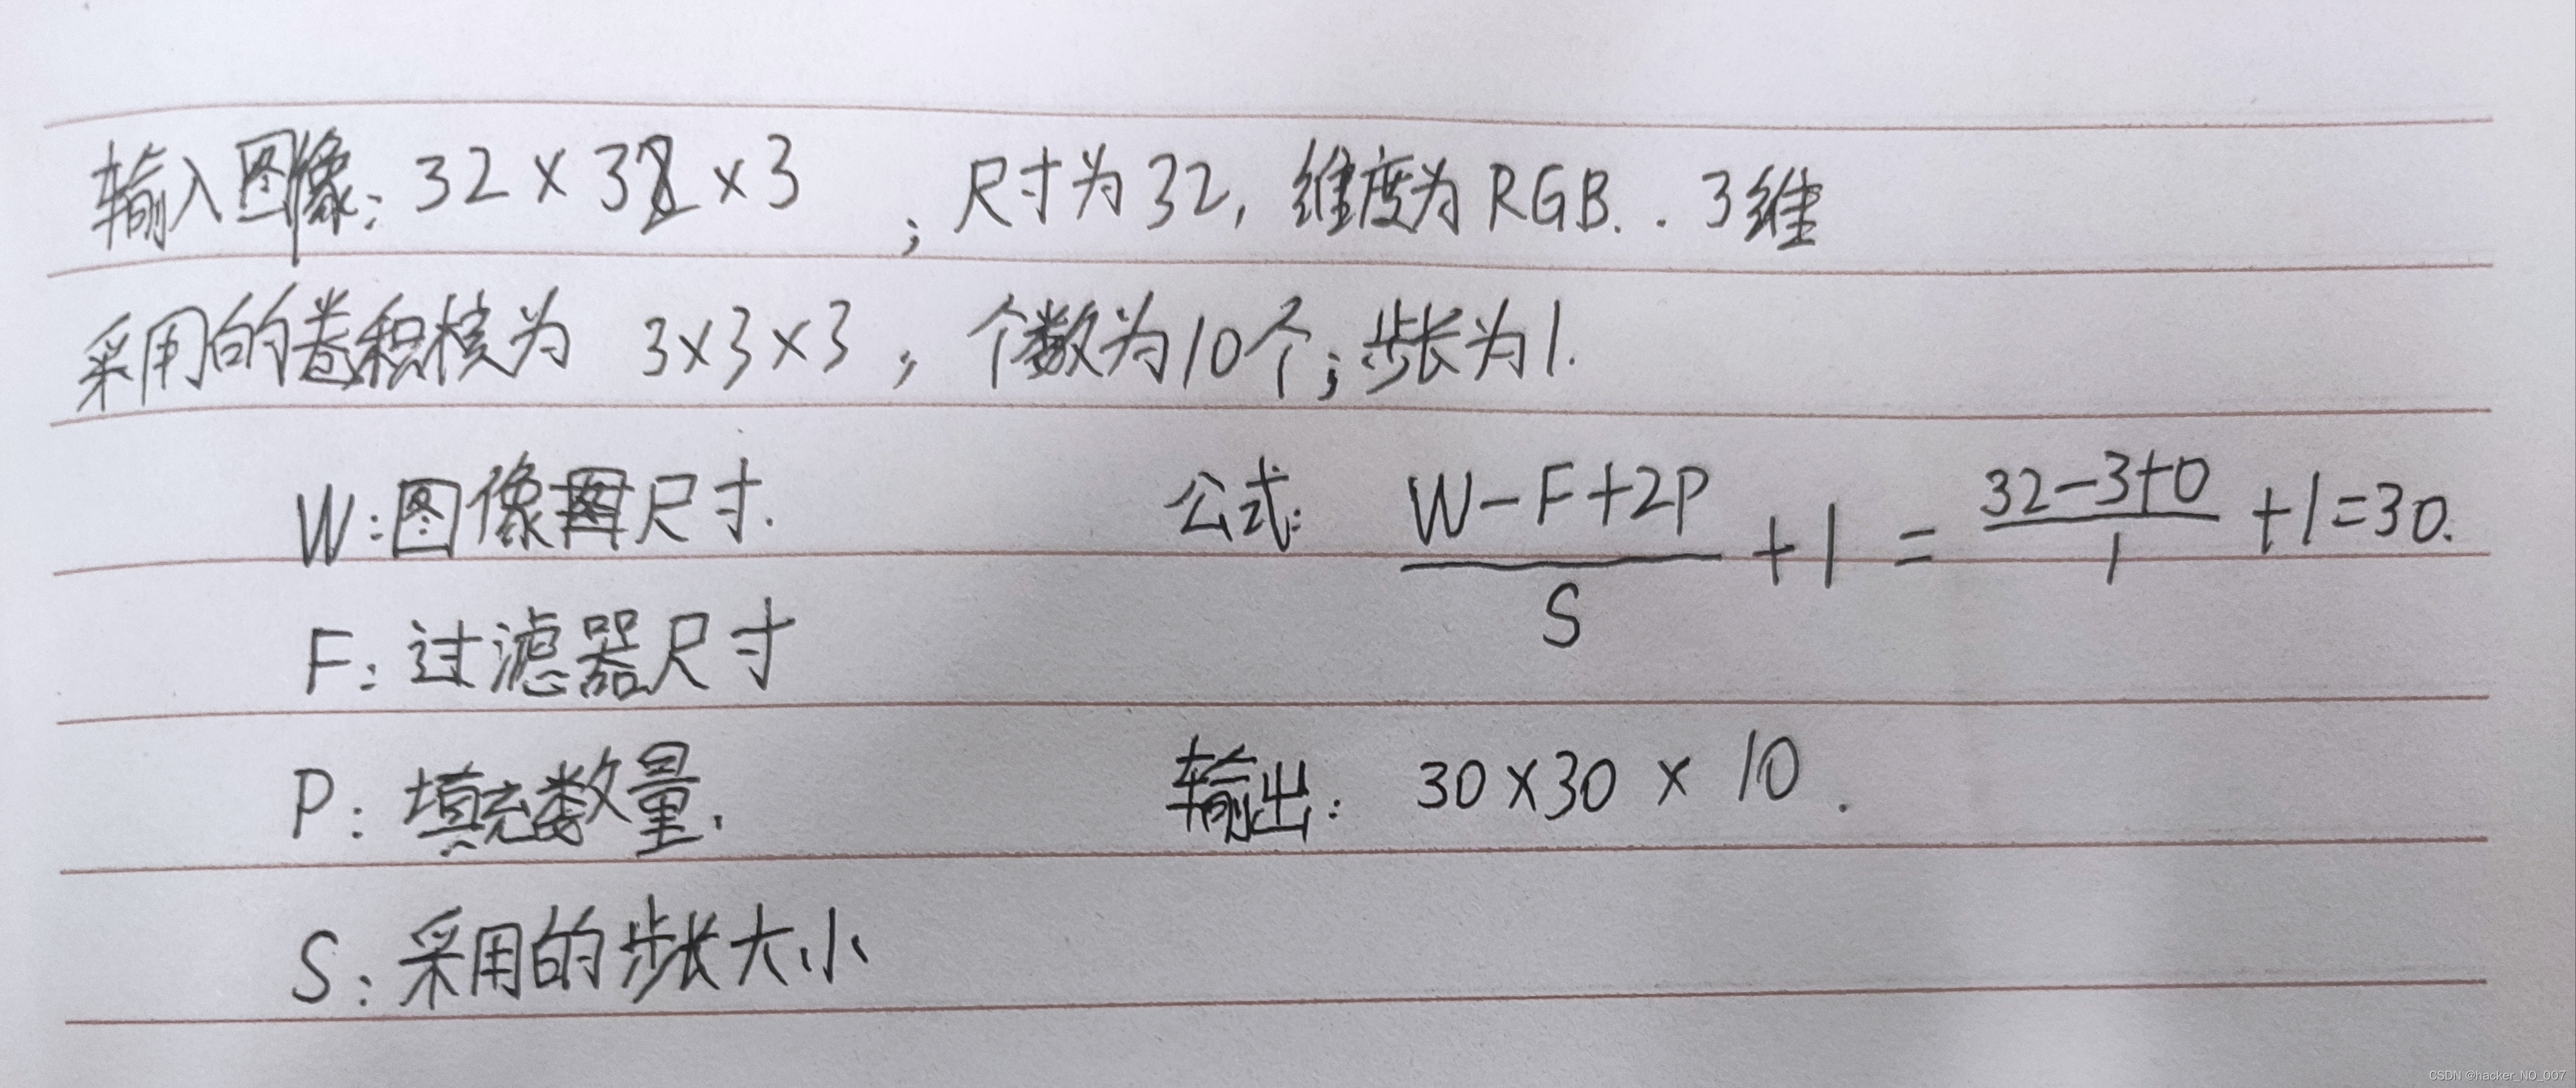 输入图像: 32 × 32 × 3 ; 尺寸为32, 维度为RGB. . 3维
采用的卷积核为 3×3×3 , 个数为10个; 步长为1.
W: 图像尺寸.
公式: (W-F+2P)/S + 1 = (32-3+0)/1 + 1 = 30.
F: 过滤器尺寸
P: 填充数量.
输出: 30×30 × 10 .
S: 采用的步长大小
CSDN @hacker_NO_007